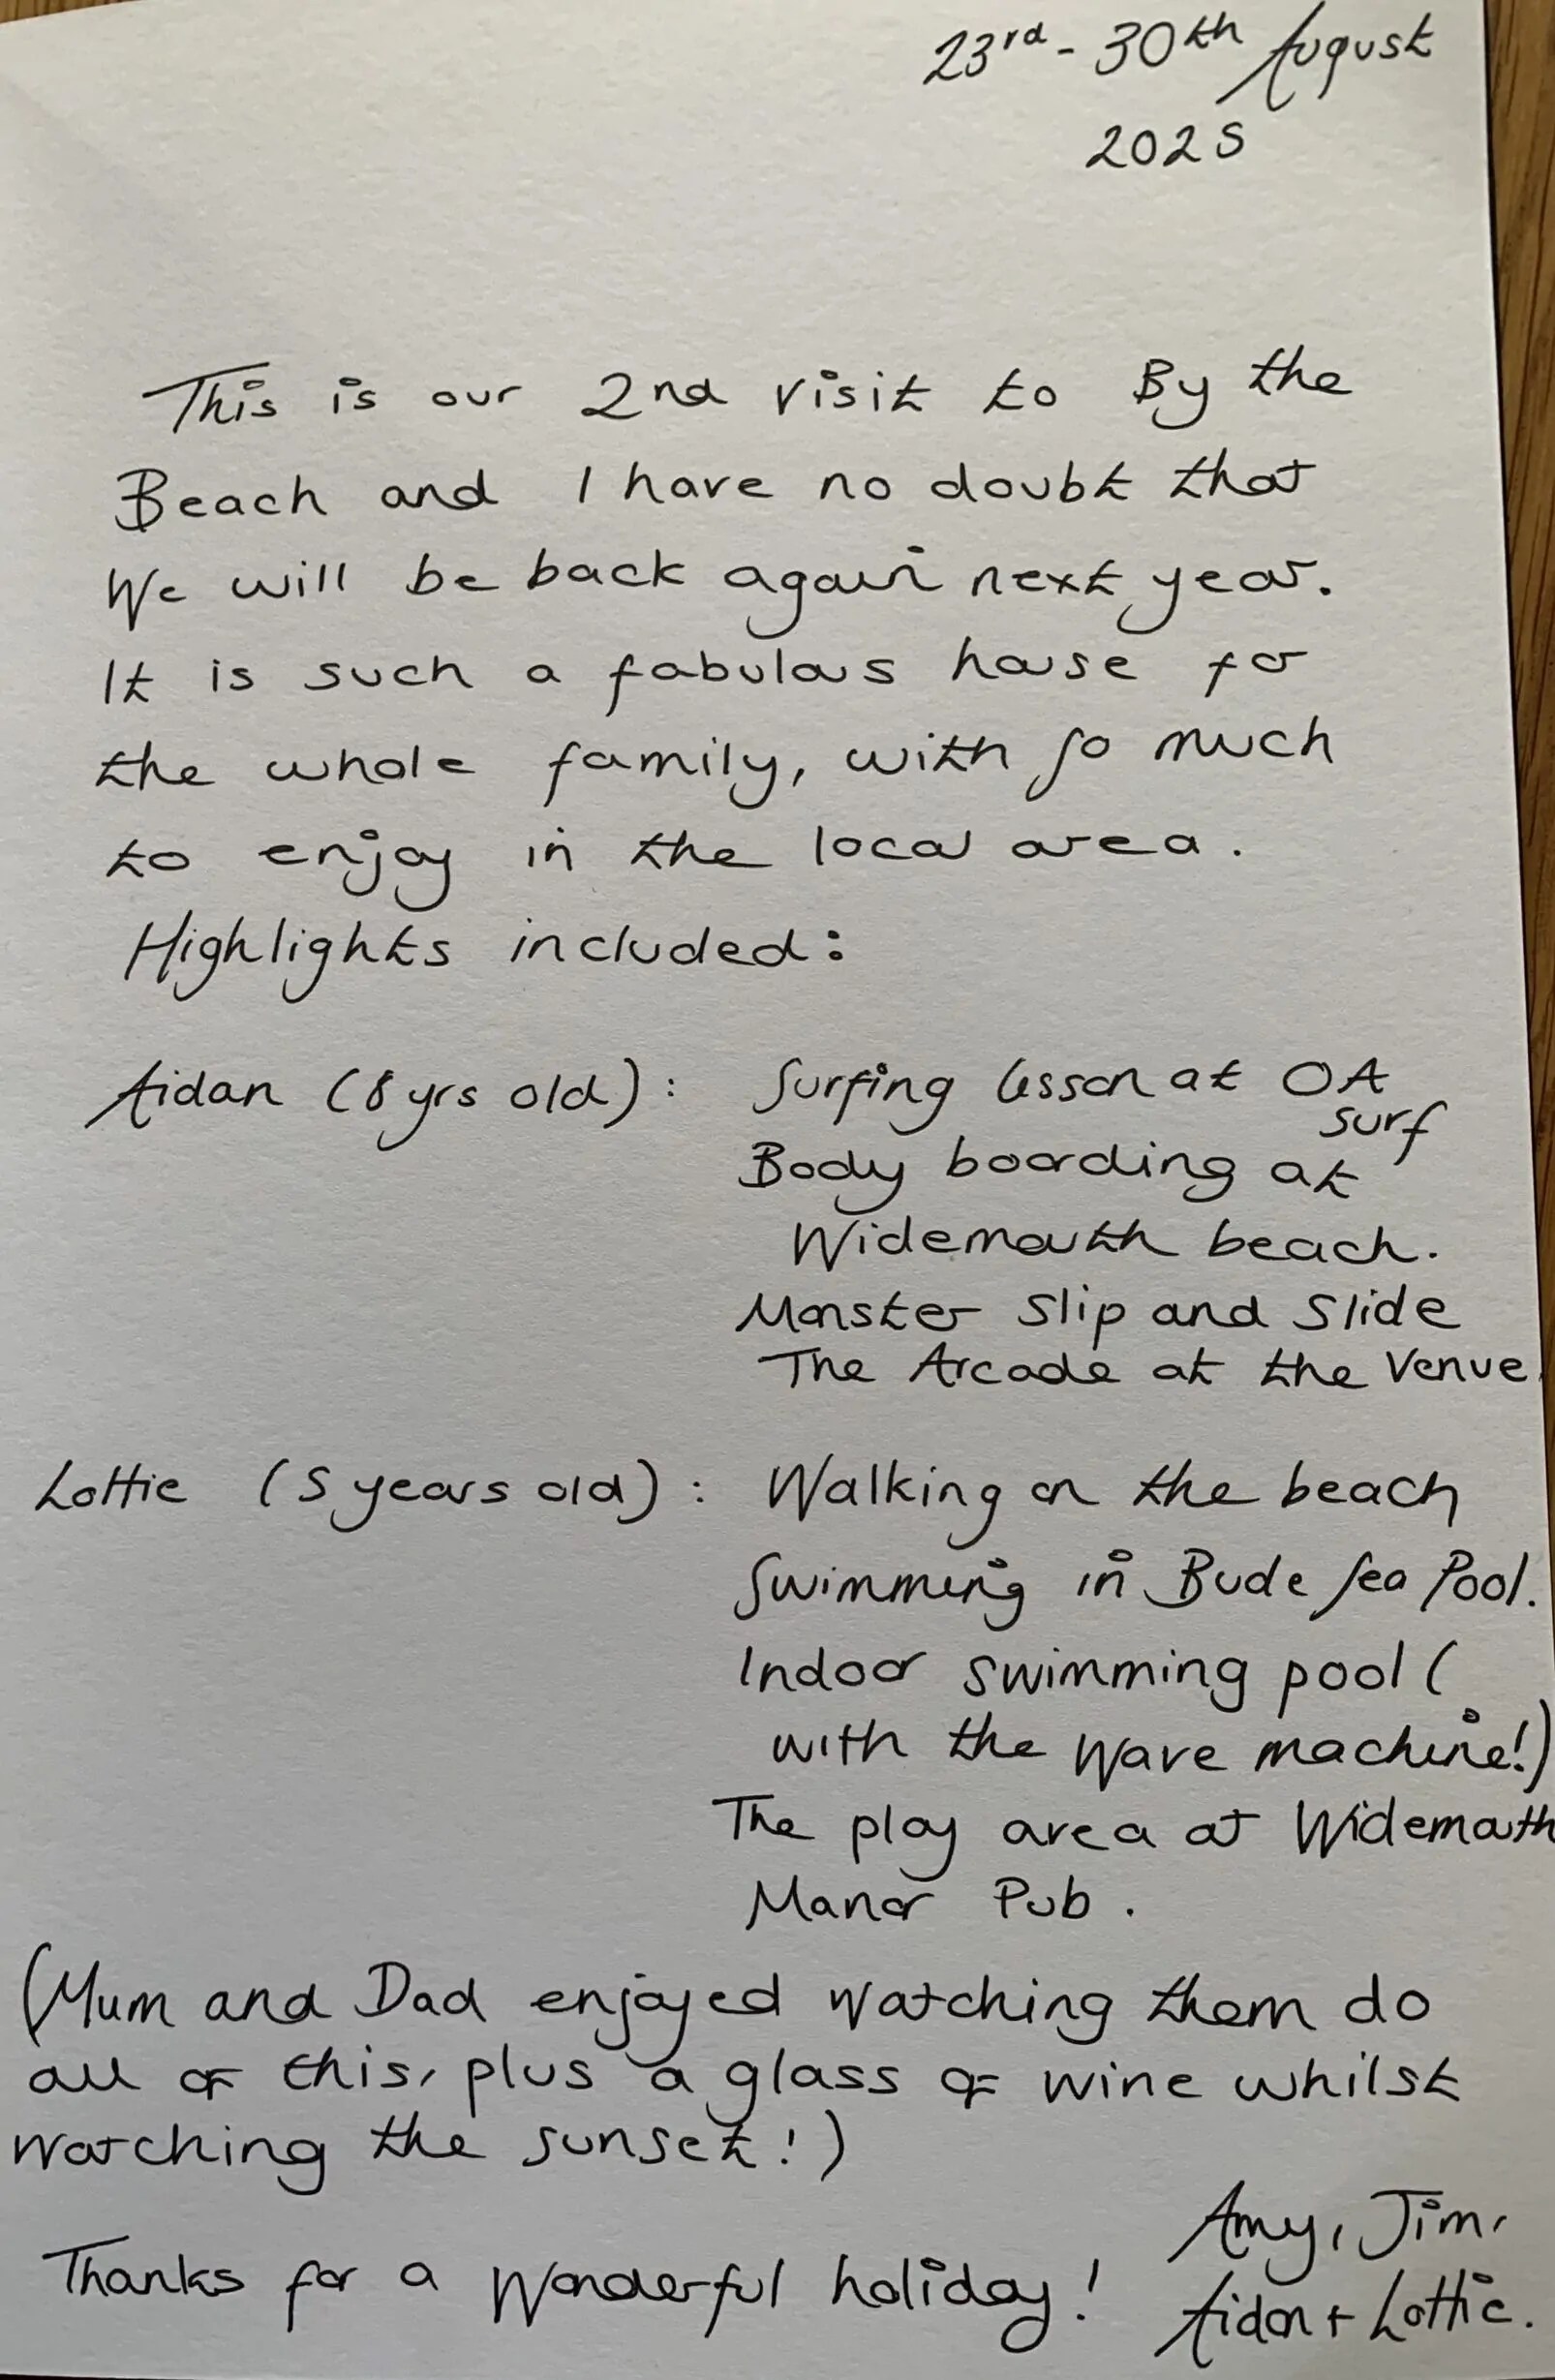 23rd - 30th August
2025
This is our 2nd visit to By the
Beach and I have no doubt that
We will be back again next year.
It is such a fabulous house for
the whole family, with so much
to enjoy in the local area.
Highlights included:
Aidan (8 yrs old): Surfing lesson at OA
surf
Body boarding at
Widemouth beach.
Monster Slip and Slide
The Arcade at the Venue.
Lottie (5 years old): Walking on the beach
Swimming in Bude Sea Pool.
Indoor swimming pool (
with the wave machine!)
The play area at Widemouth
Manor Pub.
(Mum and Dad enjoyed watching them do
all of this, plus a glass of wine whilst
watching the sunset!)
Thanks for a wonderful holiday! Amy, Jim,
Aidan + Lottie.